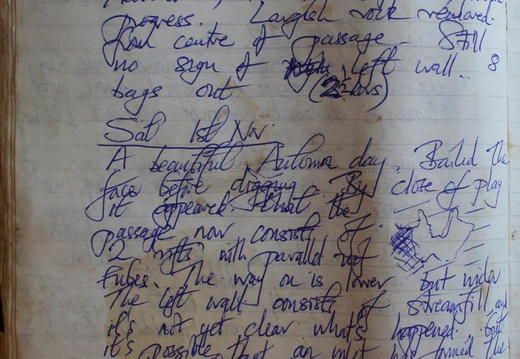 progress. Largish rock removed
from centre of passage. Still
no sign of left wall. 8
bags out (2 hrs)
Sat 1st Nov.
A beautiful Autumn day. Bailed the
face before digging. By close of play
it appeared that the
passage now consists of
2 rifts with parallel roof
tubes. The way on is lower but wider.
The left wall consists of streamfill, and
it's not yet clear what's happened but
it's possible that an inlet has formed the